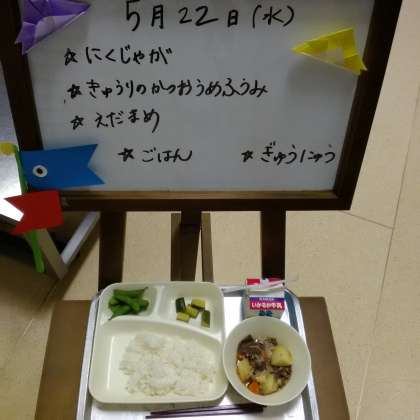 5月22日(水)
☆にくじゃが
☆きゅうりのかつおうめふうみ
☆えだまめ
☆ごはん ☆ぎゅうにゅう
いかるが牛乳